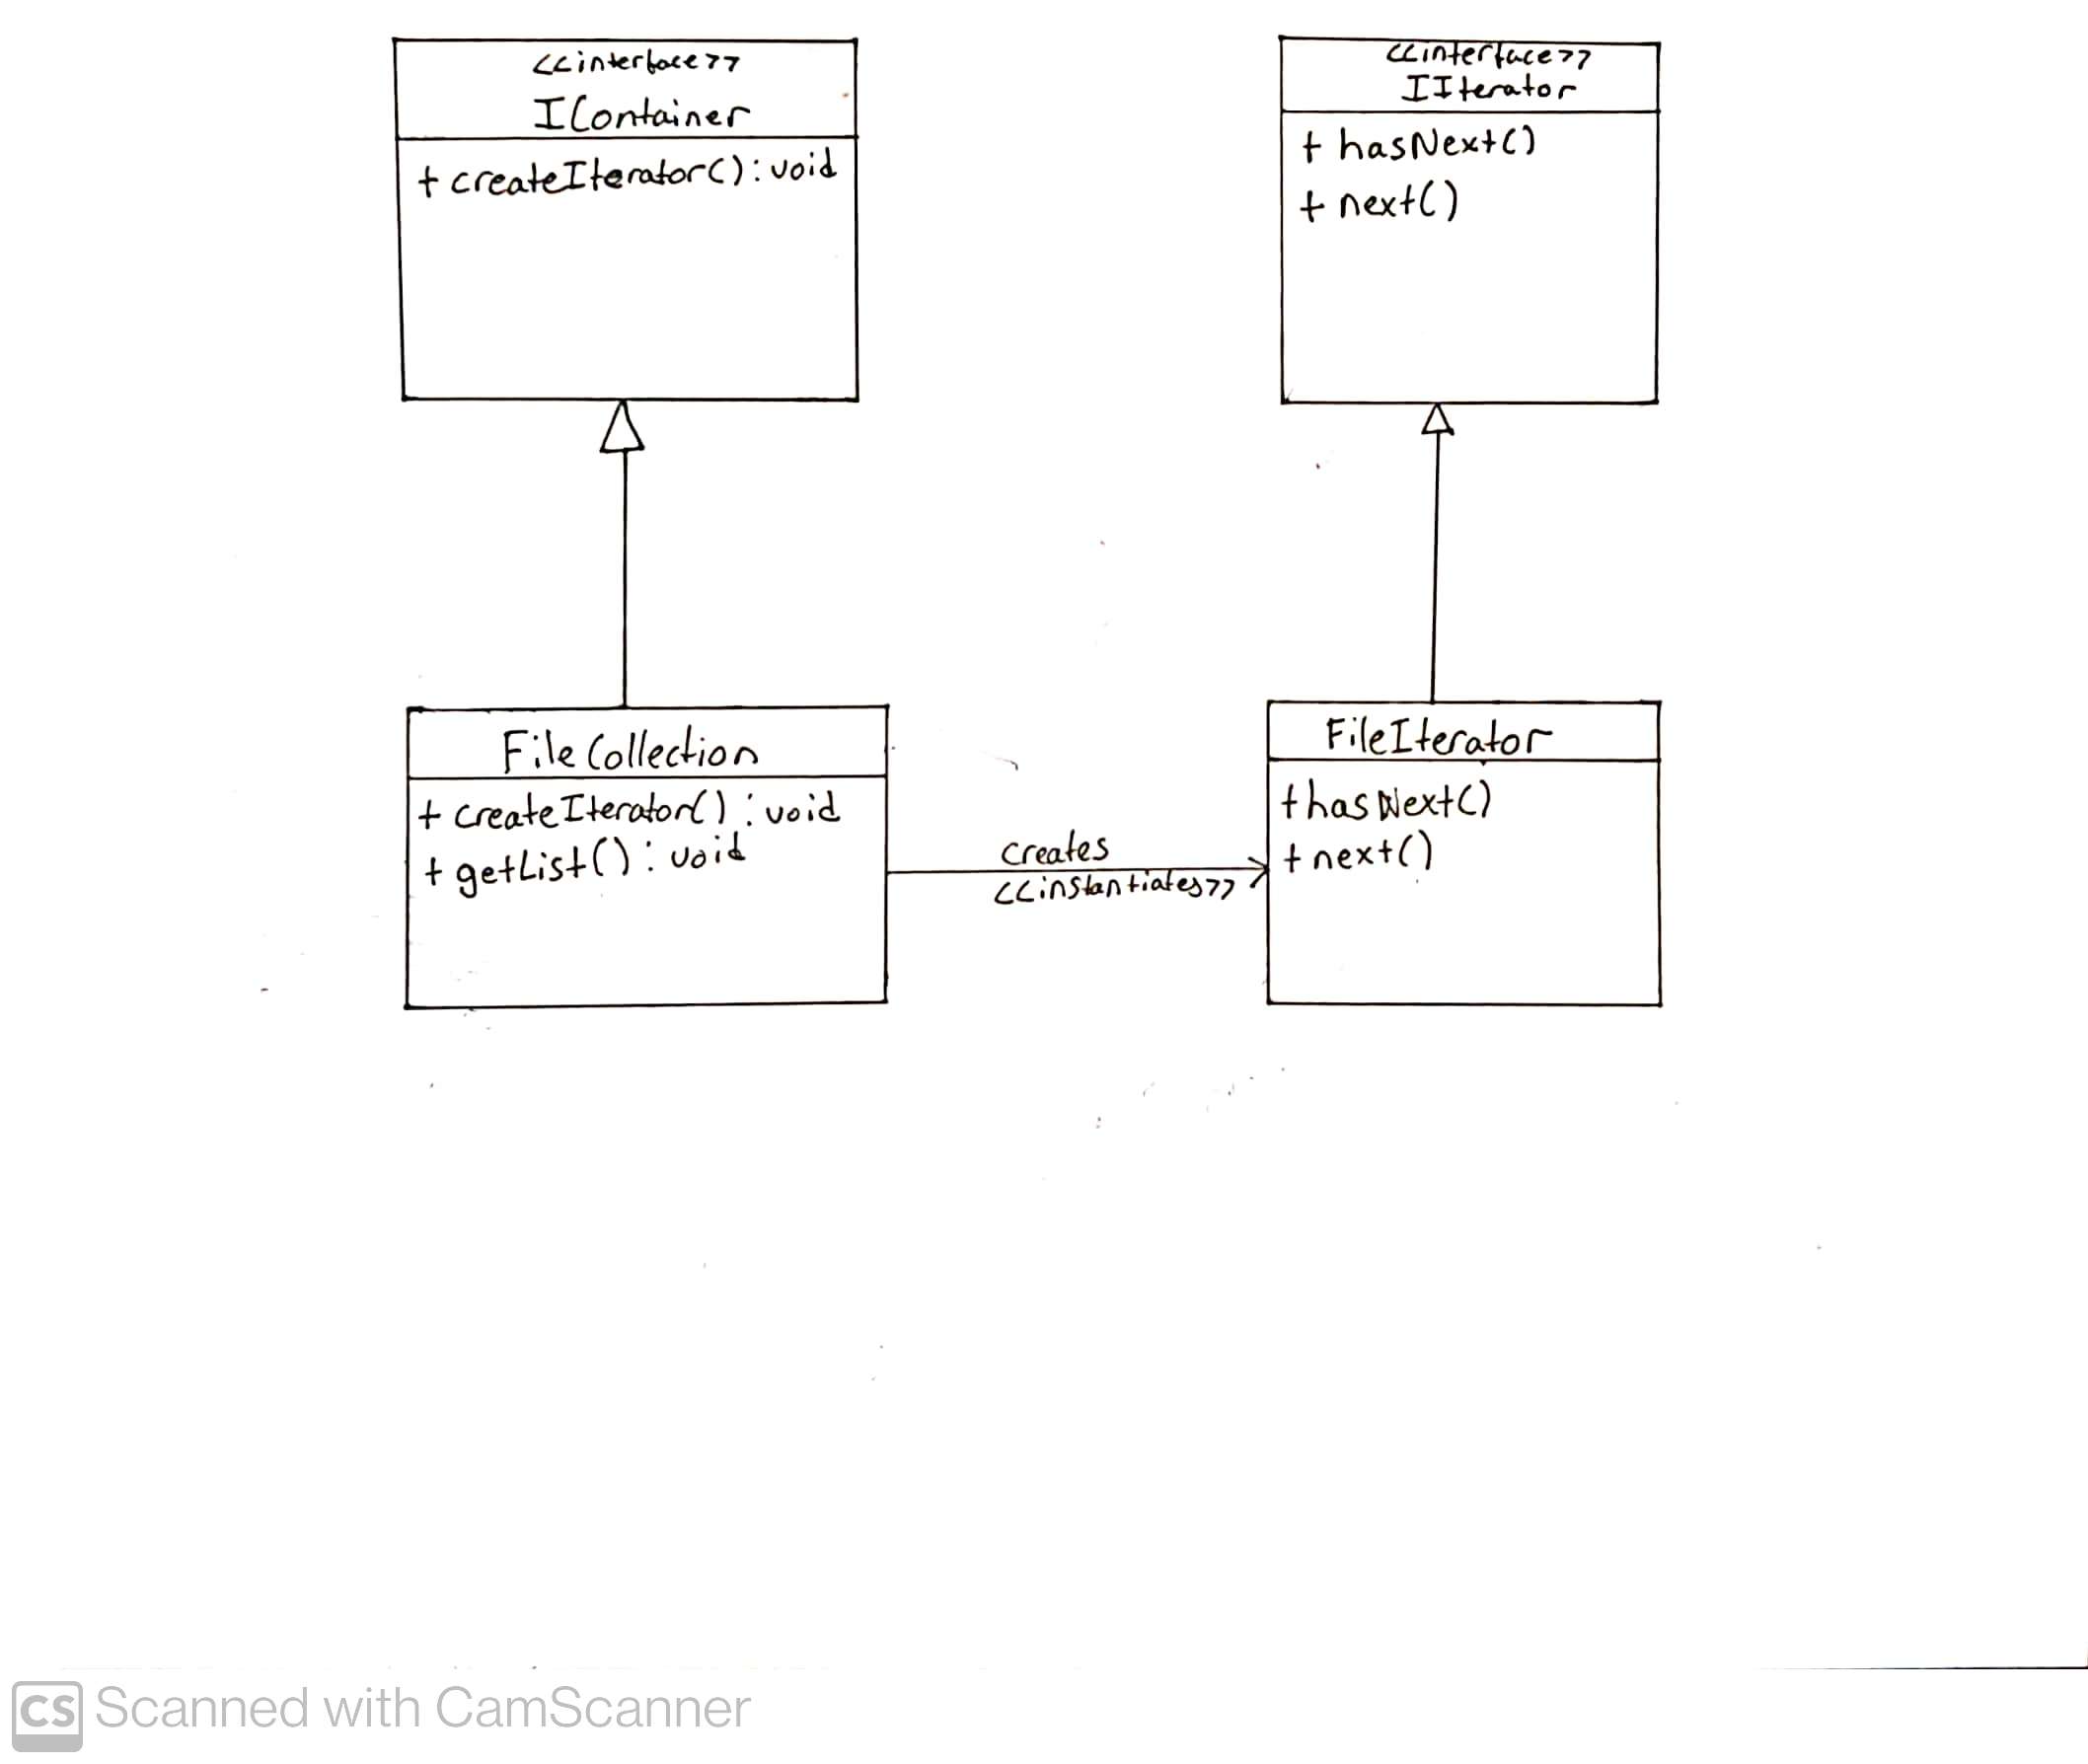 <<interface>>
IContainer
+ createIterator(): void
<<interface>>
IIterator
+ hasNext()
+ next()
File Collection
+ createIterator() : void
+ getList() : void
creates
<<instantiates>>
FileIterator
+hasNext()
+next()
CS Scanned with CamScanner